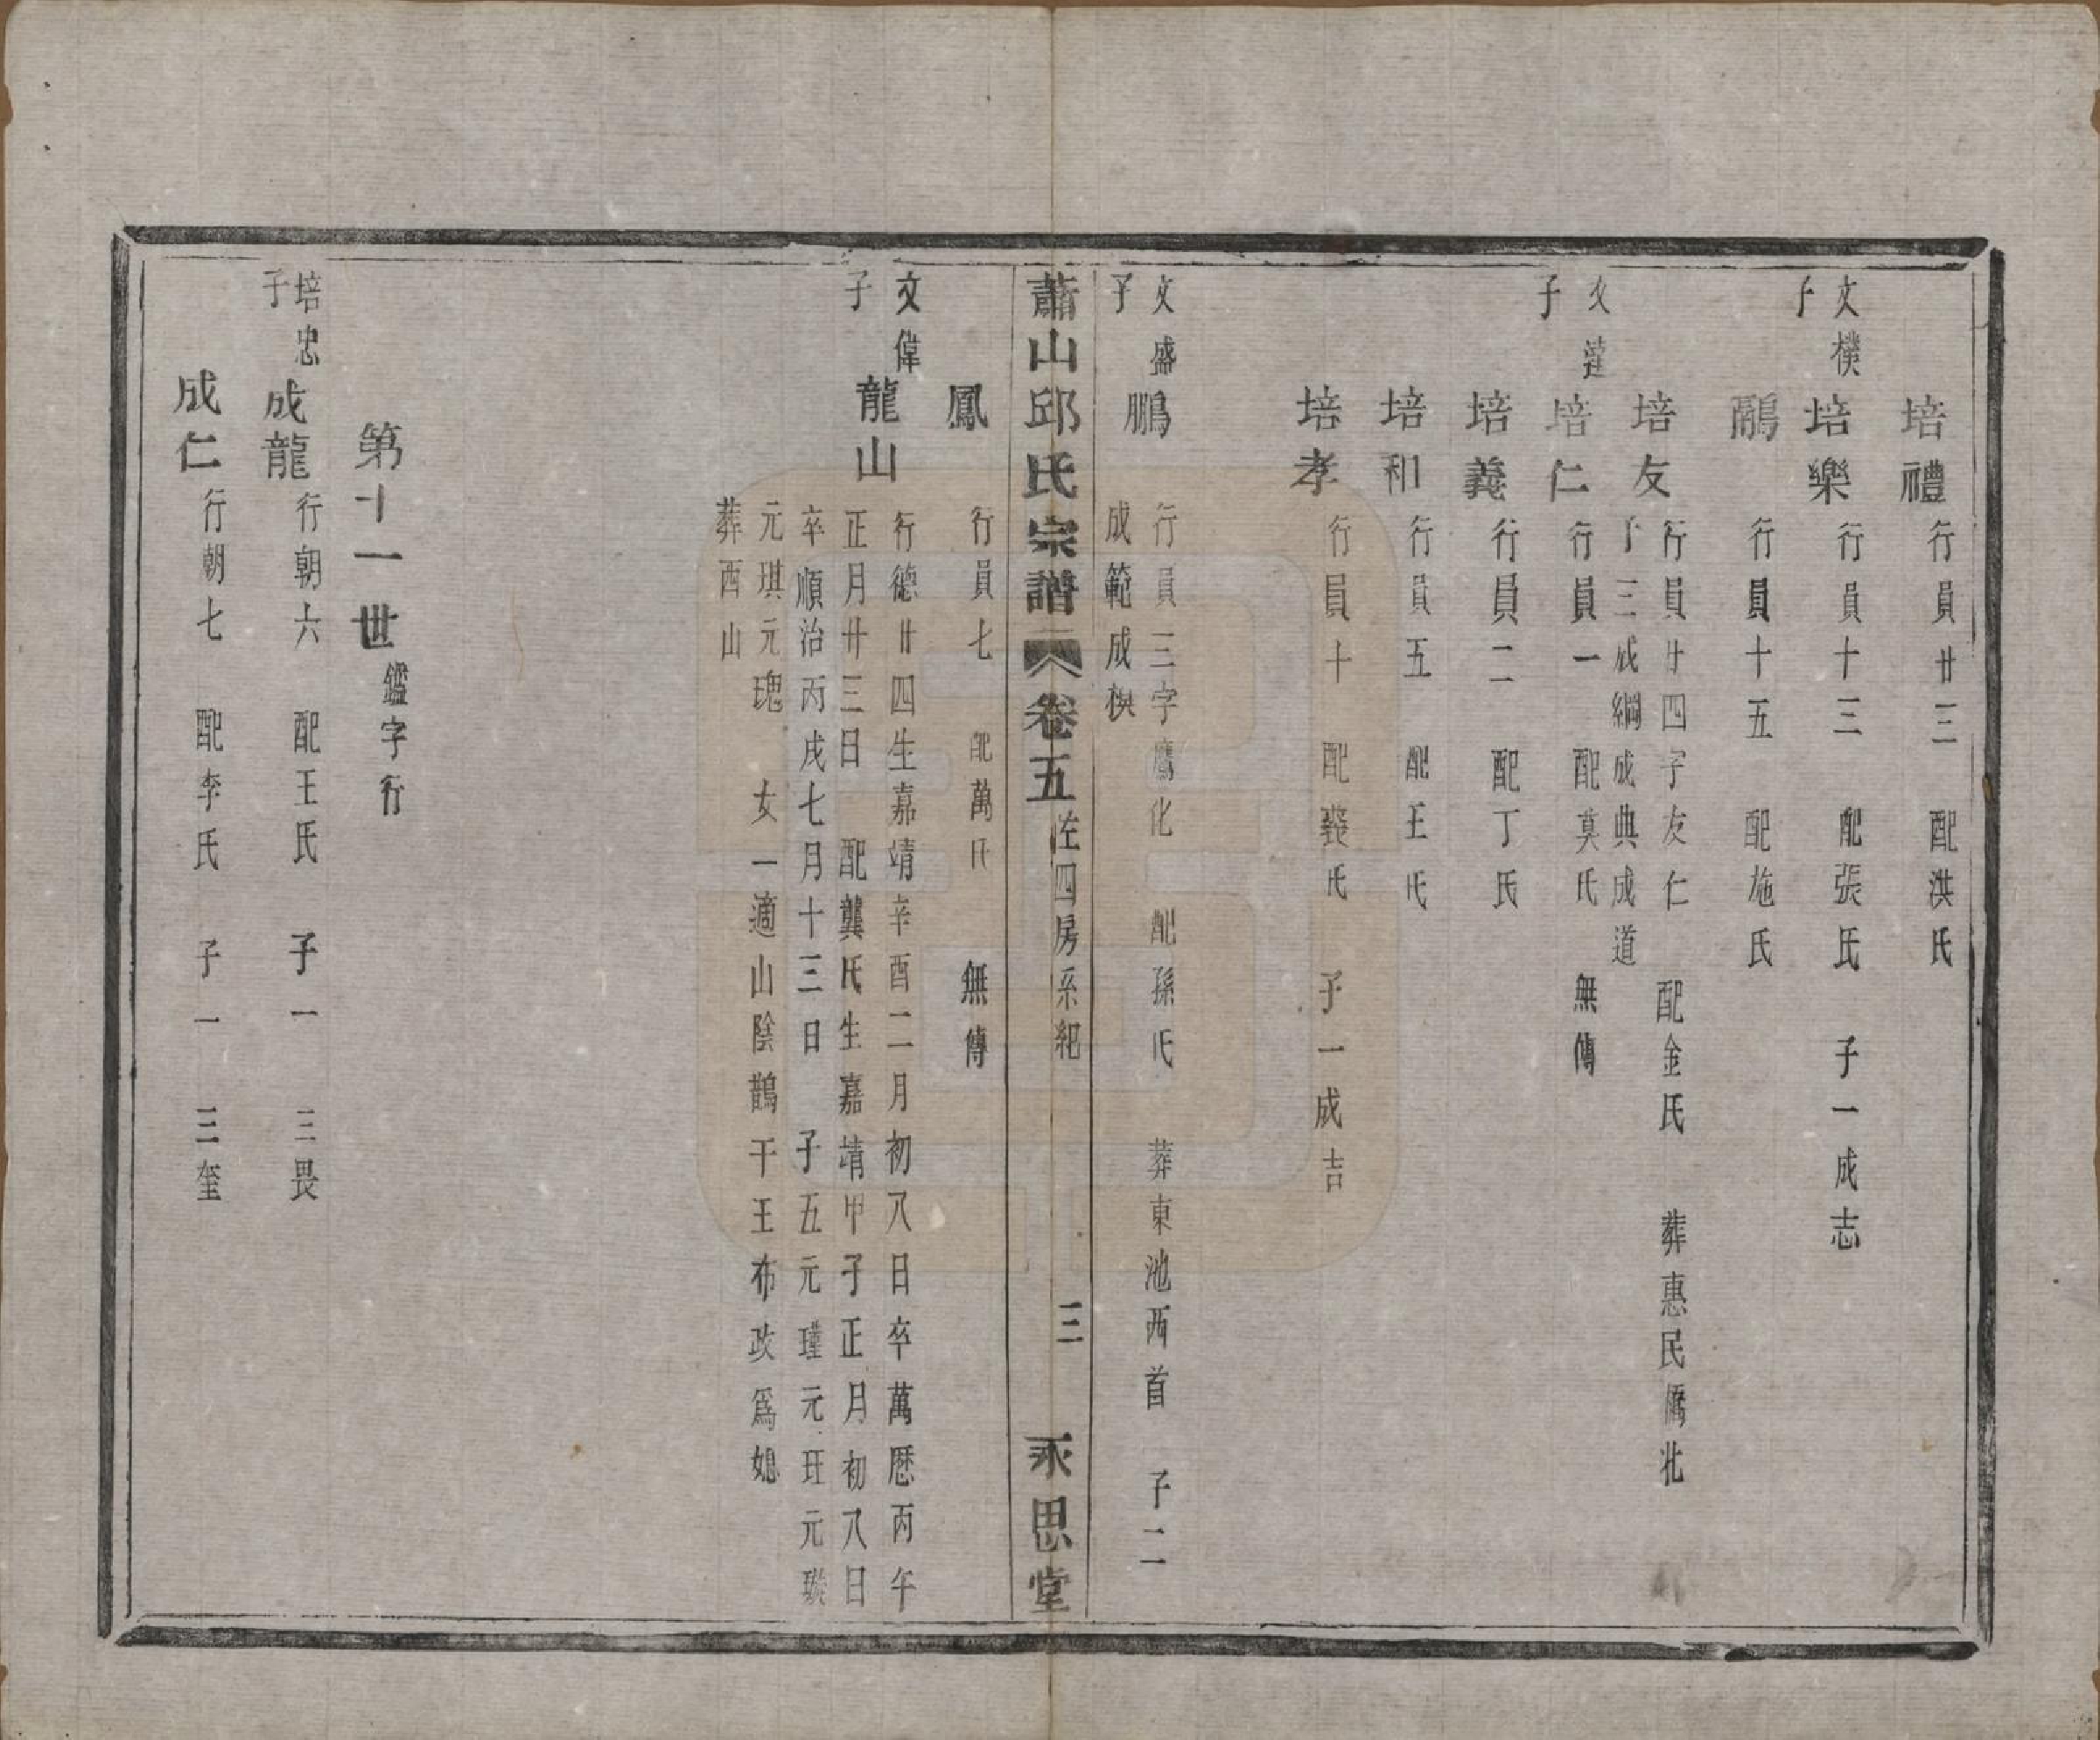 培禮 行員廿三 配洪氏
文樸子 培樂 行員十三 配張氏 子一成志
鷊 行員十五 配施氏
培友 行員廿四字友仁 配金氏 葬惠民僑北
子三成綱成典成道
文達子 培仁 行員一 配莫氏 無傳
培義 行員二 配丁氏
培和 行員五 配王氏
培孝 行員十 配裘氏 子一成吉
文盛子 鵬 行員三字鷹化 配孫氏 葬東池西首 子二
成範成楔
蕭山邱氏宗譜 卷五 佐四房系紀 三 永思堂
鳳 行員七 配萬氏 無傳
文偉子 龍山 行德廿四生嘉靖辛酉二月初八日卒萬歷丙午
正月廿三日 配龔氏生嘉靖甲子正月初八日
卒順治丙戌七月十三日 子五元瑾元玨元璇
元琪元瑰 女一適山陰鶴干王布政爲媳
葬西山
第十一世 鑑字行
培忠子 成龍 行朝六 配王氏 子一 三畏
成仁 行朝七 配李氏 子一 三奎